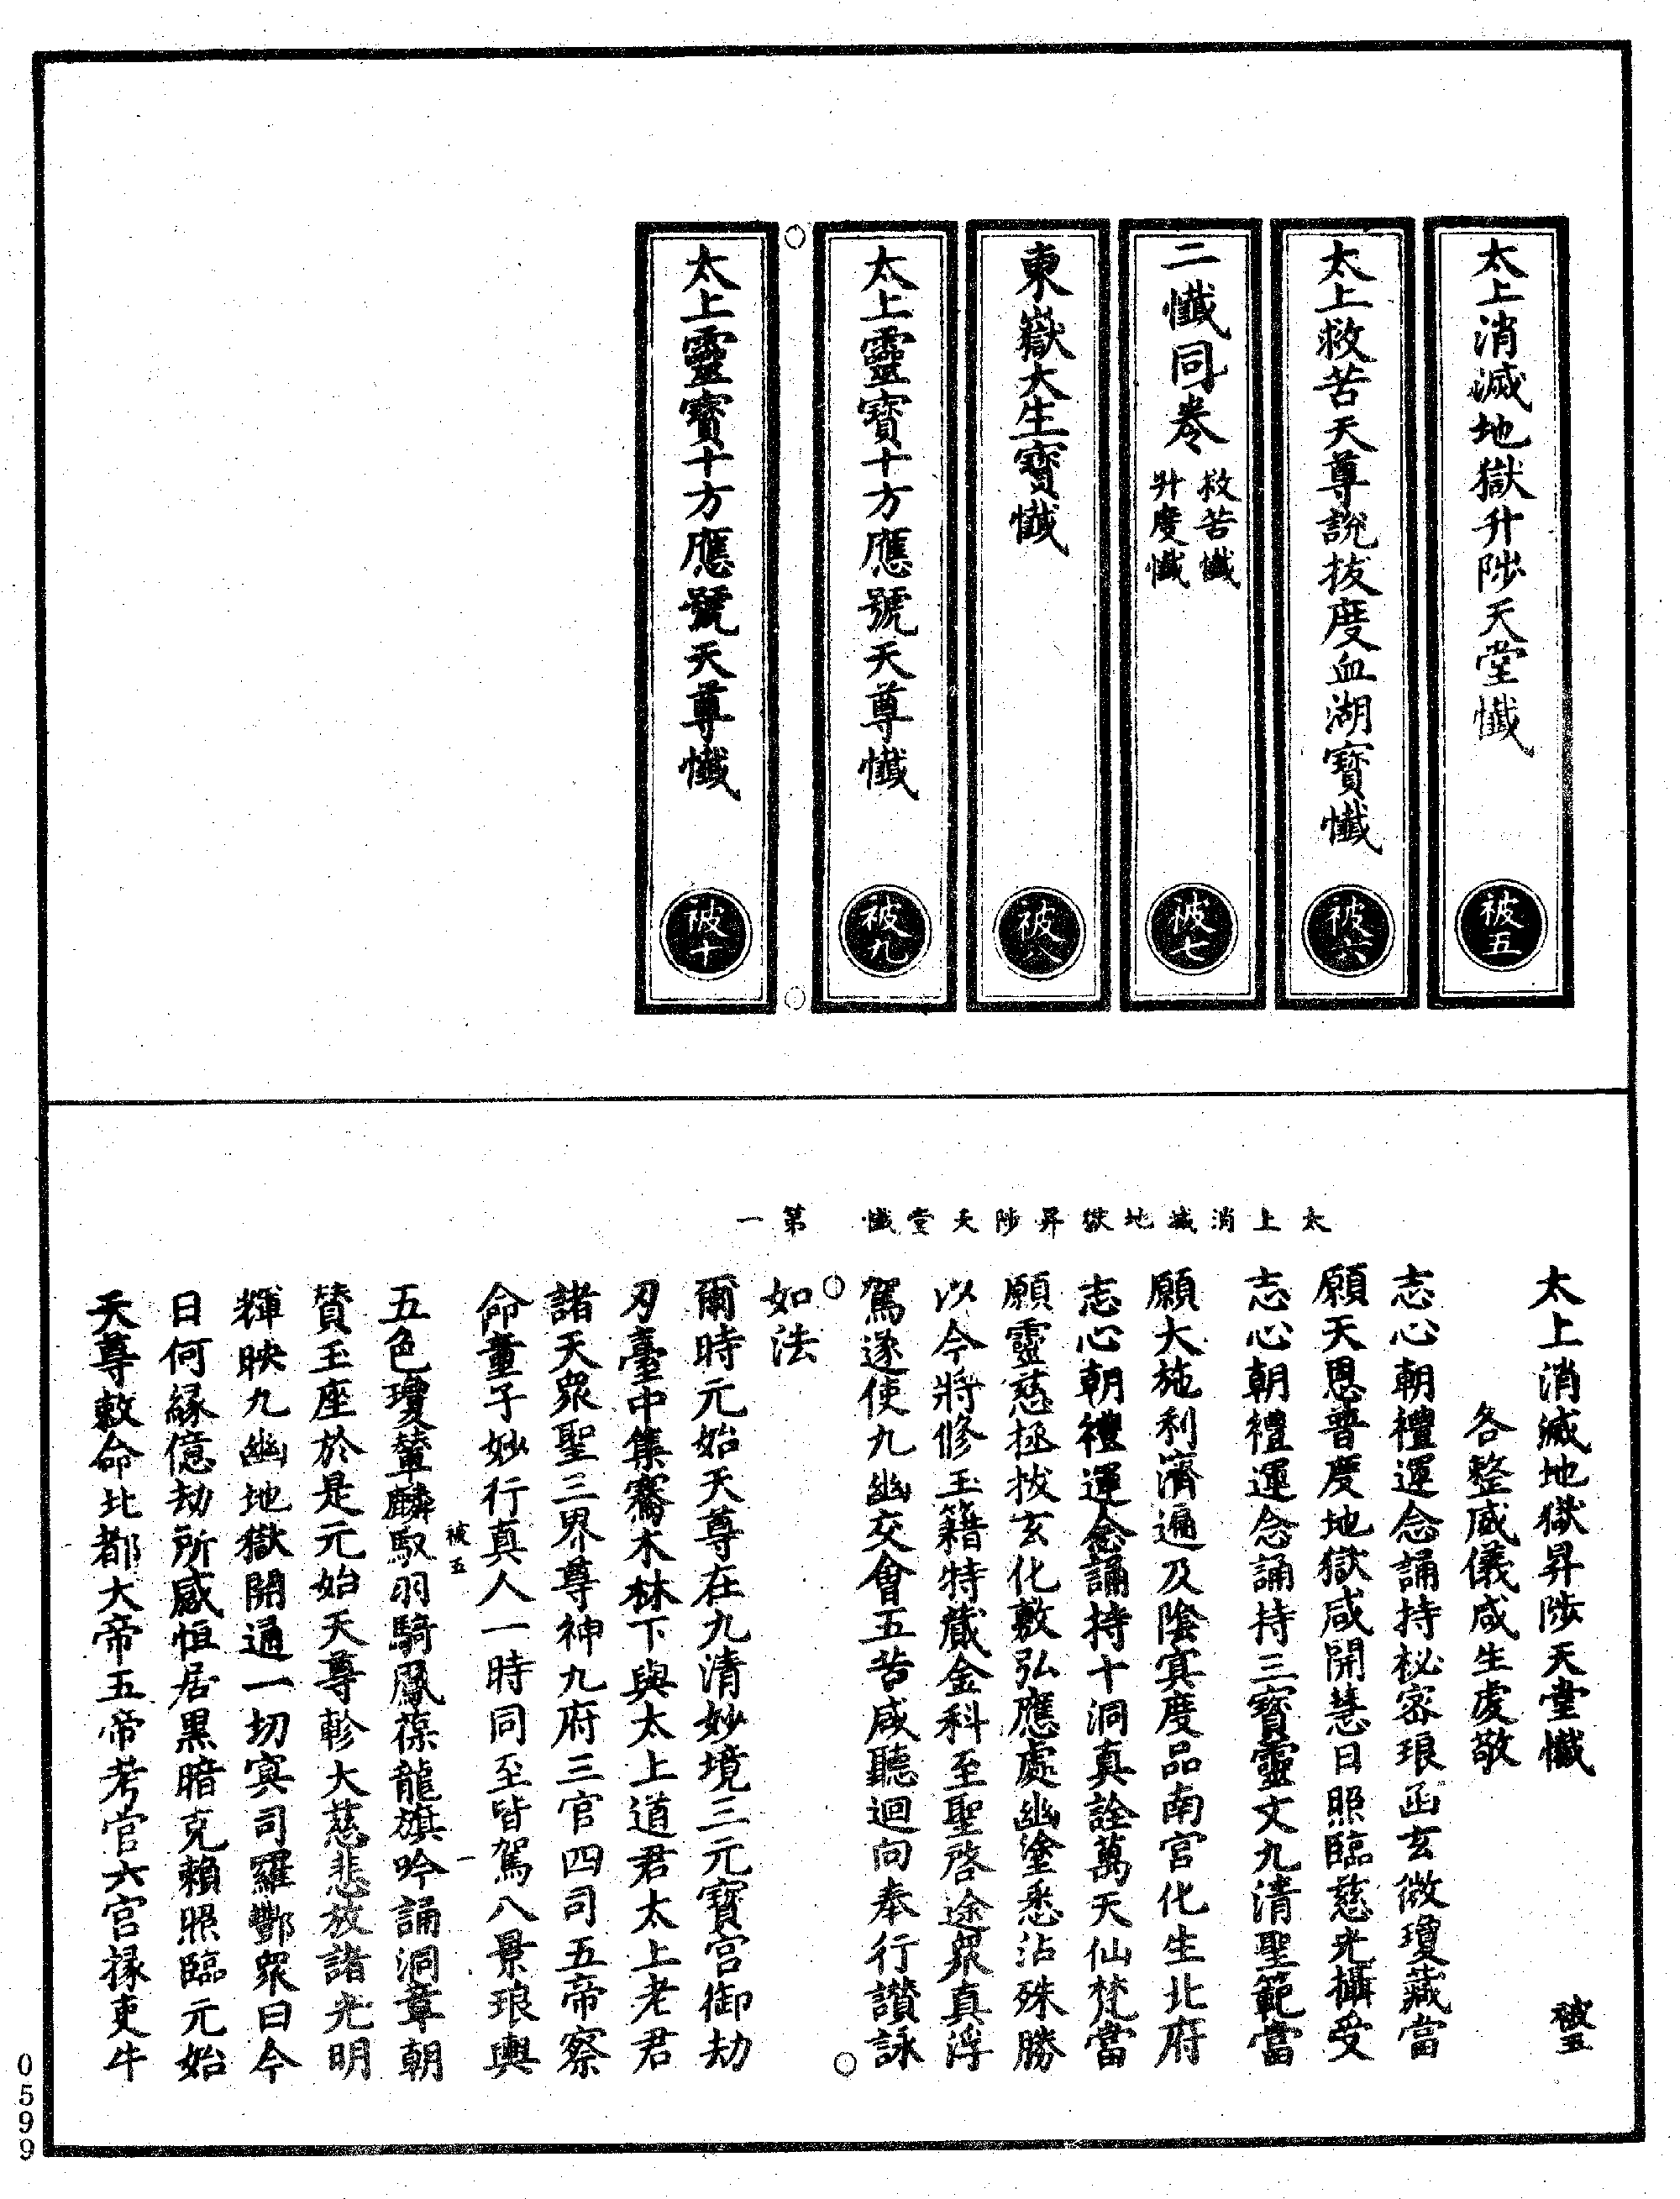 太上消滅地獄升陟天堂懺
被五
太上救苦天尊說拔度血湖寶懺
被六
二懺同卷
救苦懺
升度懺
被七
東嶽大生寶懺
被八
太上靈寶十方應號天尊懺
被九
太上靈寶十方應號天尊懺
被十
太上消滅地獄昇陟天堂懺 第一
太上消滅地獄昇陟天堂懺
被五
各整威儀咸生虔敬
志心朝禮運念誦持祕密琅函玄微瓊藏當
願天恩普度地獄咸開慧日照臨慈光攝受
志心朝禮運念誦持三寶靈文九清聖範當
願大施利濟遍及陰冥度品南宫化生北府
志心朝禮運念誦持十洞真詮萬天仙梵當
願靈慈拯拔玄化敷弘應處幽塗悉沾殊勝
以今將修玉籍特蕆金科至聖啓途衆真浮
駕遂使九幽交會五苦咸聽迴向奉行讚詠
如法
爾時元始天尊在九清妙境三元寶宫御劫
刃臺中集騫木林下與太上道君太上老君
諸天衆聖三界尊神九府三官四司五帝察
命童子妙行真人一時同至皆駕八景琅輿
被五
一
五色瓊輦麟馭羽騎鳳葆龍旗吟誦洞章朝
賛玉座於是元始天尊軫大慈悲放諸光明
輝映九幽地獄開通一切冥司羅酆衆曰今
日何緣億劫所感恒居黑暗克賴照臨元始
天尊敕命北都大帝五帝考官六宫掾吏牛
0599